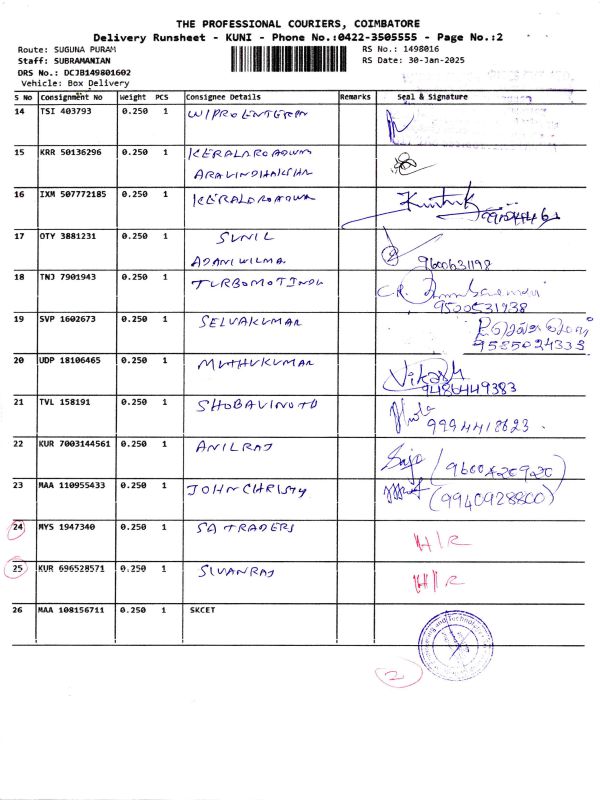 THE PROFESSIONAL COURIERS, COIMBATORE
Delivery Runsheet - KUNI - Phone No.:0422-3505555 - Page No.:2
Route: SUGUNA PURAM RS No.: 1498016
Staff: SUBRAMANIAN RS Date: 30-Jan-2025
DRS No.: DCJB149801602
Vehicle: Box Delivery
S No Consignment No Weight PCS Consignee Details Remarks Seal & Signature
14 TSI 403793 0.250 1 WIPRO ENTERPN
15 KRR 50136296 0.250 1 KERALAROADWN
ARAVINDHAKSHAN
16 IXM 507772185 0.250 1 KERALAROADWA
17 OTY 3881231 0.250 1 SUNIL
ADANI WILMA 9600631198
18 TNJ 7901943 0.250 1 TURBOMOT INDU C.R.
9500531938
19 SVP 1602673 0.250 1 SELVAKUMAR
9585024333
20 UDP 18106465 0.250 1 MUTHUKUMAR Vikash
9486449383
21 TVL 158191 0.250 1 SHOBAVINOTH
9994418623
22 KUR 7003144561 0.250 1 ANILRAJ
23 MAA 110955433 0.250 1 JOHN CHRISTY (9940928800)
24 MYS 1947340 0.250 1 SA TRADERS H/R
25 KUR 696528571 0.250 1 SIVANRAJ H/R
26 MAA 108156711 0.250 1 SKCET
2